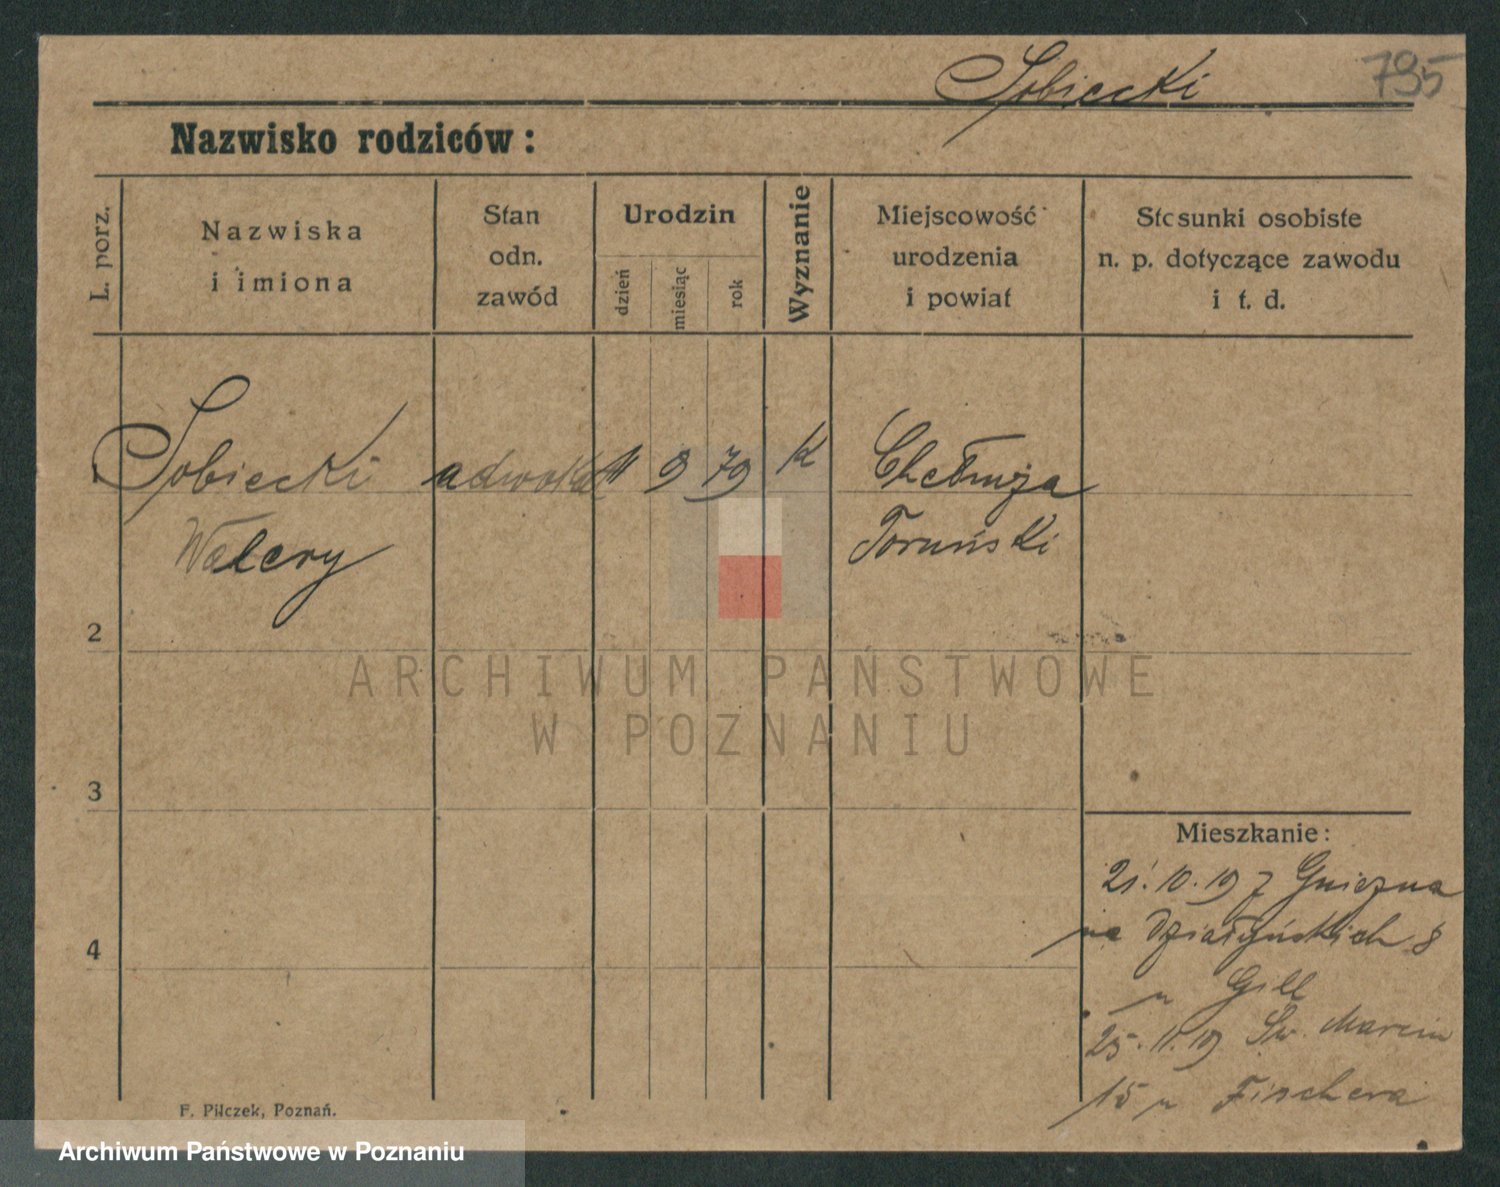 Sobiecki
795
Nazwisko rodziców:
L. porz.
Nazwiska
i imiona
Stan
odn.
zawód
Urodzin
dzień
miesiąc
rok
Wyznanie
Miejscowość
urodzenia
i powiat
Stosunki osobiste
n. p. dotyczące zawodu
i t. d.
Sobiecki adwokat 11 9 79 k Chełmża
Walery Toruński
2
ARCHIWUM PAŃSTWOWE
W POZNANIU
3
Mieszkanie:
21.10.19 z Gniezna
na Działyńskich 8
u Gill
25.11.19 Św. Marcin
15 u Fischera
4
F. Pilczek, Poznań.
Archiwum Państwowe w Poznaniu